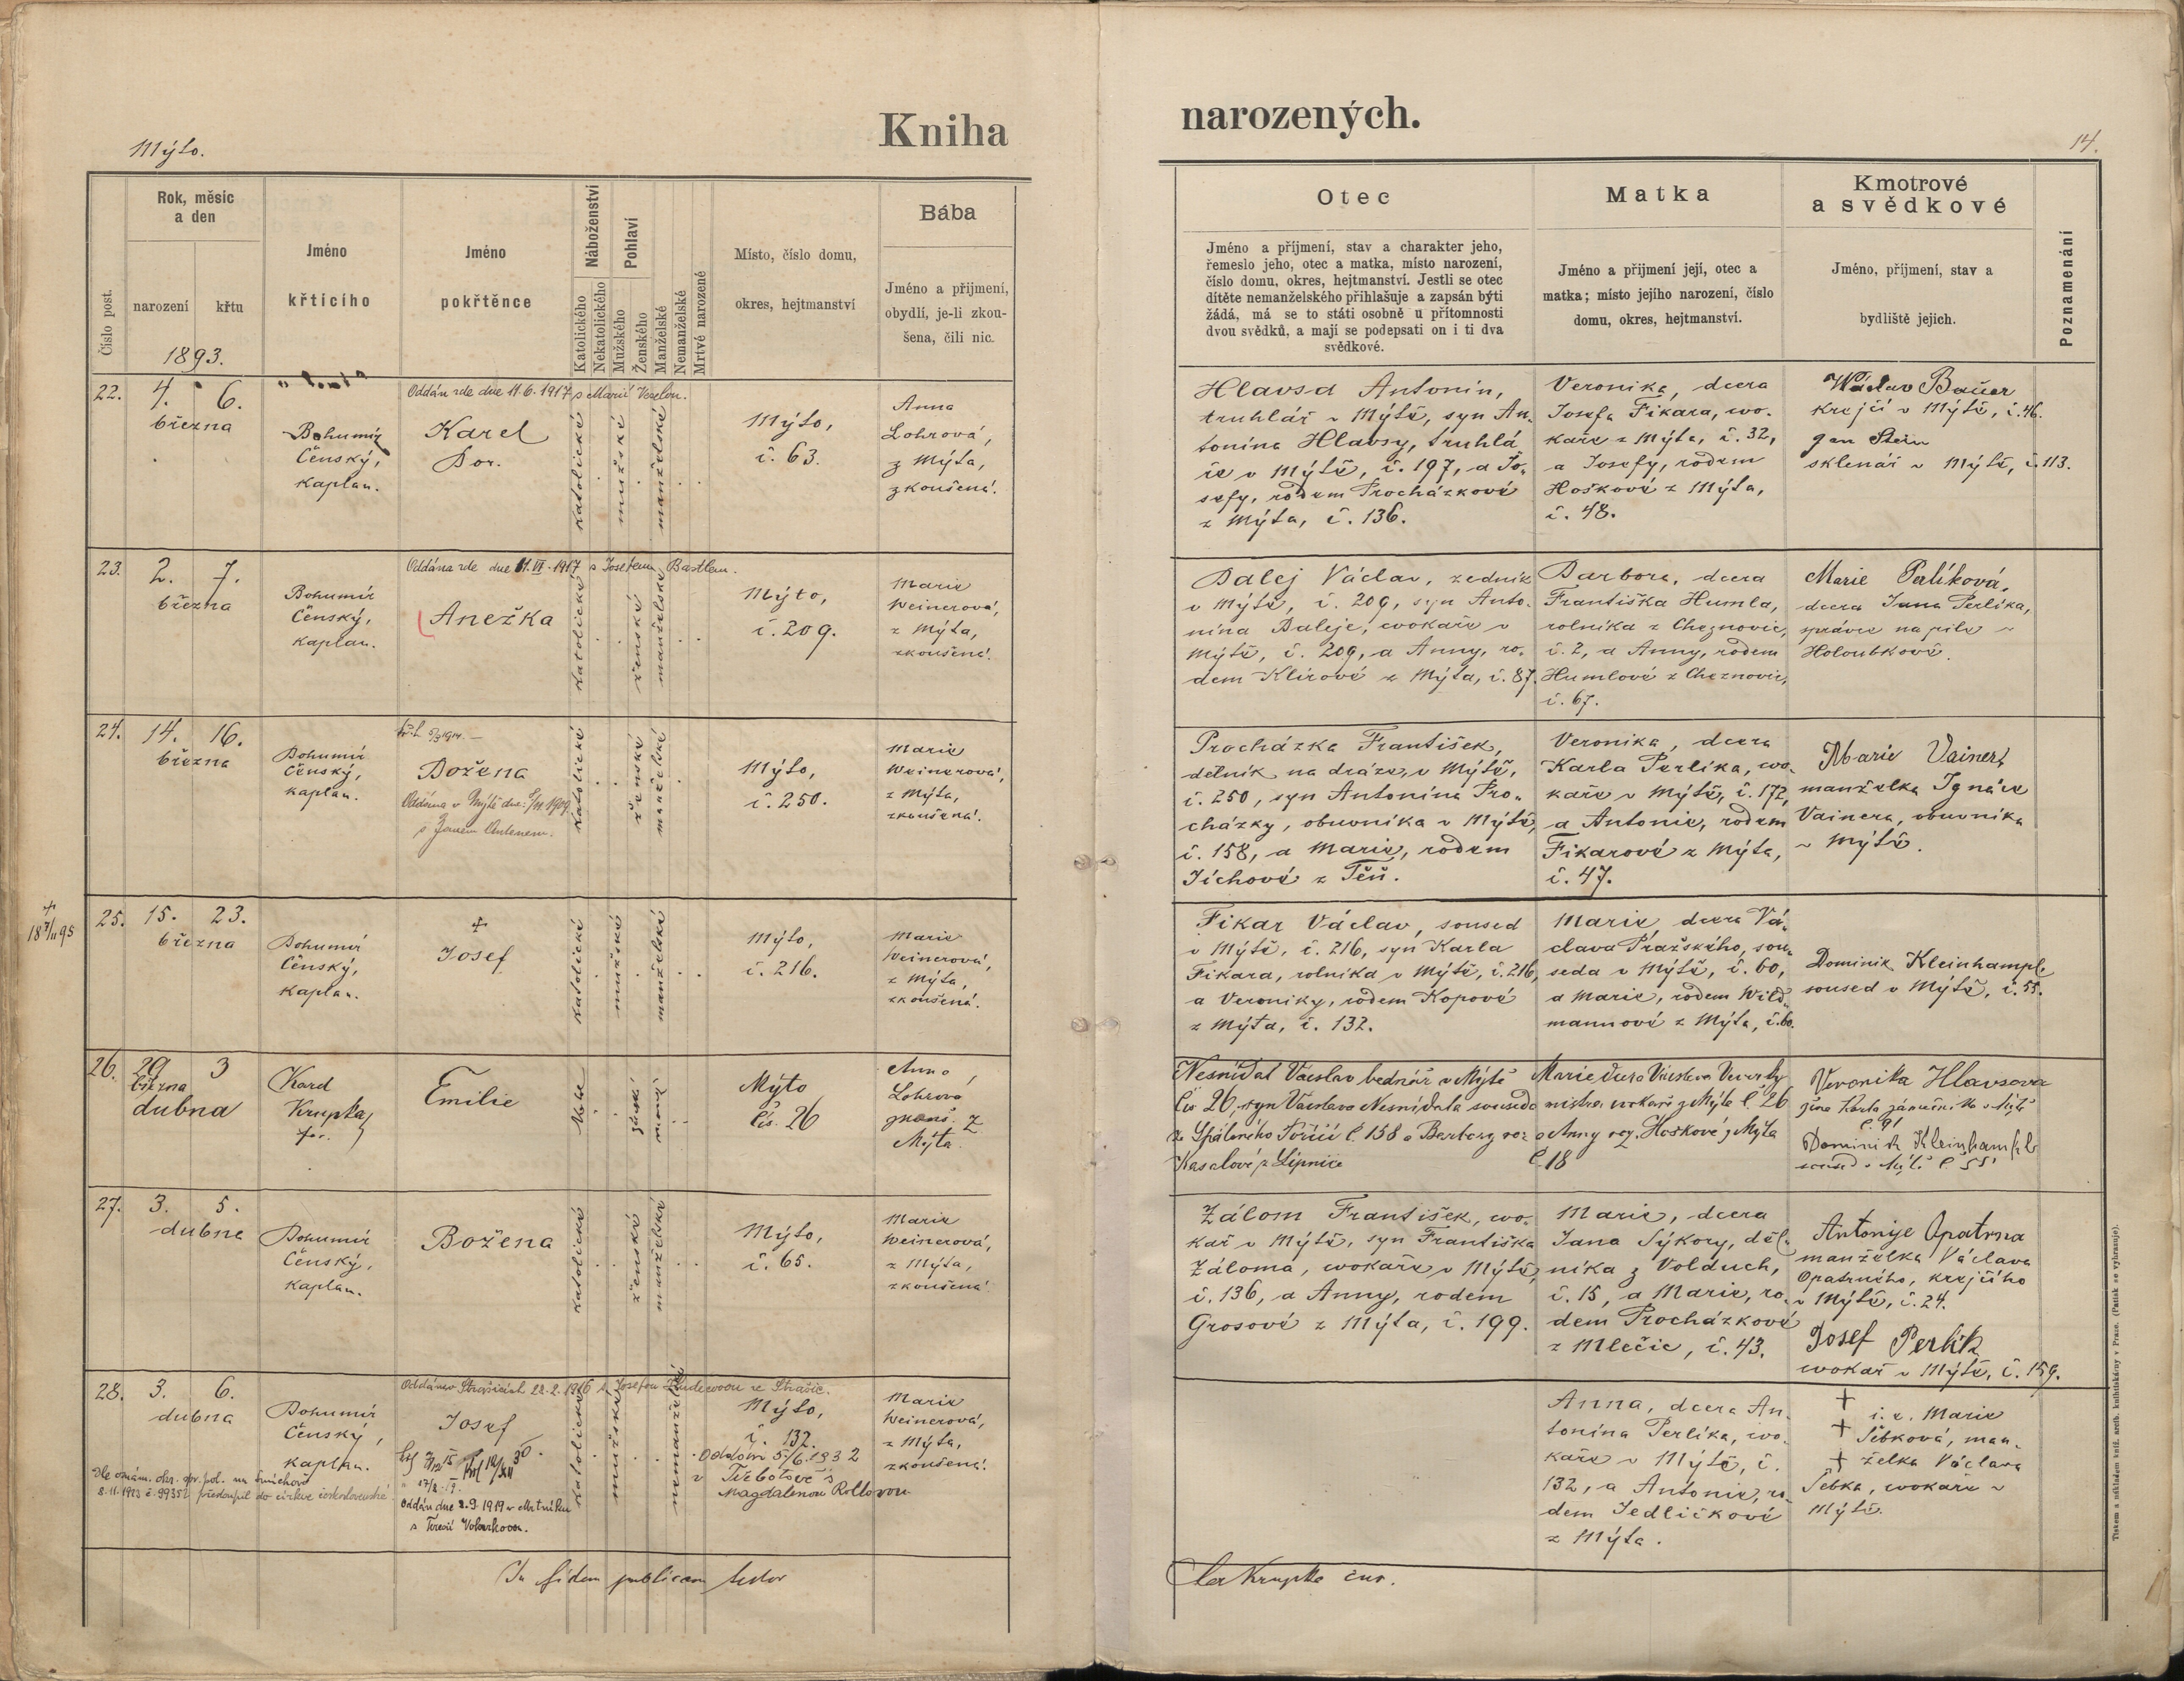 Kniha narozených.
Mýto.
14.
Číslo post.
Rok, měsíc
a den
narození
křtu
1893.
Jméno
křtícího
Jméno
pokřtěnce
Náboženství
Katolického
Nekatolického
Pohlaví
Mužského
Ženského
Manželské
Nemanželské
Mrtvé narozené
Místo, číslo domu,
okres, hejtmanství
Bába
Jméno a příjmení,
obydlí, je-li zkou-
šena, čili nic.
Otec
Jméno a příjmení, stav a charakter jeho,
řemeslo jeho, otec a matka, místo narození,
číslo domu, okres, hejtmanství. Jestli se otec
dítěte nemanželského přihlašuje a zapsán býti
žádá, má se to státi osobně u přítomnosti
dvou svědků, a mají se podepsati on i ti dva
svědkové.
Matka
Jméno a příjmení její, otec a
matka; místo jejího narození, číslo
domu, okres, hejtmanství.
Kmotrové
a svědkové
Jméno, příjmení, stav a
bydliště jejich.
Poznamenání
22.
4. 6.
března
Bohumír
Čenský,
kaplan.
Oddán zde dne 11.6.1917 s Marií Veselou.
Karel
Bor.
katolické
mužské
manželské
Mýto,
č. 63.
Anna
Lohrová,
z Mýta,
zkoušená.
Hlavsa Antonín,
truhlář v Mýtě, syn An-
tonína Hlavsy, truhlá
ře v Mýtě, č. 197, a Jo-
sefy, rodem Procházkové
z Mýta, č. 136.
Veronika, dcera
Josefa Fikara, cvo-
kaře z Mýta, č. 32,
a Josefy, rodem
Hoškové z Mýta,
č. 48.
Václav Bauer
krejčí v Mýtě, č. 46.
Jan Stein
sklenář v Mýtě, č. 113.
23.
2. 7.
března
Bohumír
Čenský,
kaplan.
Oddána zde dne 11.VI.1917 s Josefem Bastlem.
Anežka
katolické
ženské
manželské
Mýto,
č. 209.
Marie
Weinerová,
z Mýta,
zkoušená.
Balej Václav, zedník
v Mýtě, č. 209, syn Anto-
nína Baleje, cvokaře v
Mýtě, č. 209, a Anny, ro-
dem Klírové z Mýta, č. 87.
Barbora, dcera
Františka Humla,
rolníka z Cheznovic,
č. 2, a Anny, rodem
Humlové z Cheznovic,
č. 67.
Marie Perlíková,
dcera Jana Perlíka,
správce na pile v
Holoubkově.
24.
14. 16.
března
Bohumír
Čenský,
kaplan.
Božena
Oddána v Mýtě dne 1909
s Janem
katolické
ženské
manželské
Mýto,
č. 250.
Marie
Weinerová,
z Mýta,
zkoušená.
Procházka František,
dělník na dráze, v Mýtě,
č. 250, syn Antonína Pro-
cházky, obuvníka v Mýtě,
č. 158, a Marie, rodem
Jíchové z Těň.
Veronika, dcera
Karla Perlíka, cvo-
kaře v Mýtě, č. 172,
a Antonie, rodem
Fikarové z Mýta,
č. 47.
Marie Vainer,
manželka Ignáce
Vainera, obuvníka
v Mýtě.
+
18 7/11 95
25.
15. 23.
března
Bohumír
Čenský,
kaplan.
+
Josef
katolické
mužské
manželské
Mýto,
č. 216.
Marie
Weinerová,
z Mýta,
zkoušená.
Fikar Václav, soused
v Mýtě, č. 216, syn Karla
Fikara, rolníka v Mýtě, č. 216,
a Veroniky, rodem Kopové
z Mýta, č. 132.
Marie, dcera Vá-
clava Pražského, sou-
seda v Mýtě, č. 60,
a Marie, rodem Wild-
mannové z Mýta, č. 60.
Dominik Kleinhampl
soused v Mýtě, č. 55.
26.
29 3
března
dubna
Karel
Krupka
far.
Emilie
Mýto
čís. 26
Anna
Lohrova
z
Mýta.
Nesnídal Václav bednář v Mýtě
čís 26, syn Václava Nesnídala souseda
ze Spáleného Poříčí č. 158 a Barbory roz
Kasalové z Lipnice
Marie dcera Václava
mistra cvokaře z Mýta č. 26
a Anny roz. Hoškové z Mýta
č 18
Veronika Hlavsova
žena Karla v Mýtě
č. 91
Dominik Kleinhampl
soused v Mýtě č. 55
27.
3. 5.
dubna
Bohumír
Čenský,
kaplan.
Božena
katolické
ženské
manželské
Mýto,
č. 65.
Marie
Weinerová,
z Mýta,
zkoušená.
Zálom František, cvo-
kař v Mýtě, syn Františka
Záloma, cvokaře v Mýtě,
č. 136, a Anny, rodem
Grosové z Mýta, č. 199.
Marie, dcera
Jana Sýkory, děl-
níka z Volduch,
č. 15, a Marie, ro-
dem Procházkové
z Mlečic, č. 43.
Antonije Opatrna
manželka Václava
Opatrného, krejčího
v Mýtě, č. 24.
Josef Perlík
cvokař v Mýtě, č. 159.
28.
3. 6.
dubna
Bohumír
Čenský,
kaplan.
Oddán v Strašicích 22.2.1916 s Josefou ze Strašic.
Josef
Dle oznám. okr. spr. pol. na Smíchově
8.11.1923 č. 99352 přestoupil do církve československé
Oddán dne 2.9.1919 v Mrtníku
s Terezií
katolické
mužské
nemanželské
Mýto,
č. 132.
Oddán 5/6.1932
v Třebotově s
Magdalenou Rollovou
Marie
Weinerová,
z Mýta,
zkoušená.
Anna, dcera An-
tonína Perlíka, cvo-
kaře v Mýtě, č.
132, a Antonie, ro-
dem Jedličkové
z Mýta.
+
+
+
i. e. Marie
Šebková, man-
želka Václava
Šebka, cvokaře v
Mýtě.
In fidem publicam testor
Car Krupka cur.
Tiskem a nákladem kníž. arcib. knihtiskárny v Praze. (Patisk se vyhrazuje).